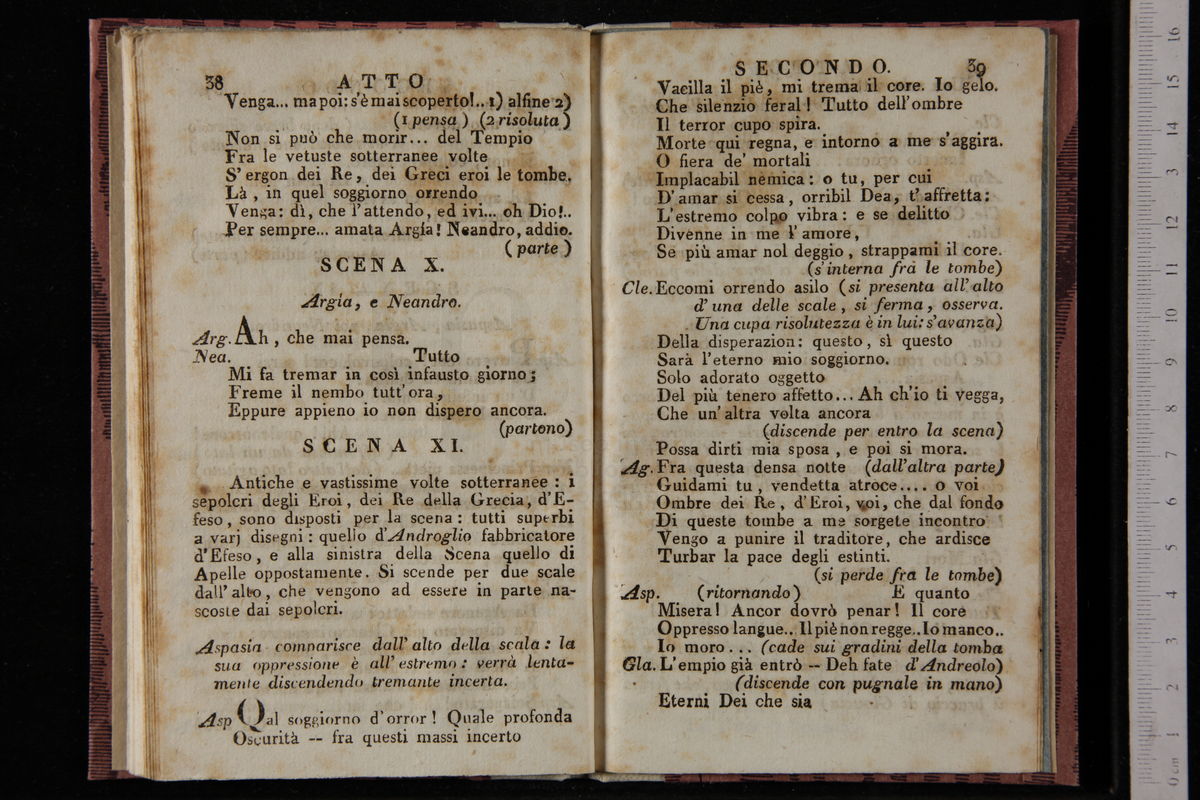 38 ATTO
Venga... ma poi: s'è mai scoperto!.. 1) alfine 2)
(1 pensa) (2 risoluta)
Non si può che morir... del Tempio
Fra le vetuste sotterranee volte
S'ergon dei Re, dei Greci eroi le tombe.
Là, in quel soggiorno orrendo
Venga: dì, che l'attendo, ed ivi... oh Dio!..
Per sempre... amata Argía! Neandro, addio.
(parte)
SCENA X.
Argía, e Neandro.
Arg. Ah, che mai pensa.
Nea. Tutto
Mi fa tremar in così infausto giorno;
Freme il nembo tutt'ora,
Eppure appieno io non dispero ancora.
(partono)
SCENA XI.
Antiche e vastissime volte sotterranee: i
sepolcri degli Eroi, dei Re della Grecia, d'E-
feso, sono disposti per la scena: tutti superbi
a varj disegni: quello d'Androglio fabbricatore
d'Efeso, e alla sinistra della Scena quello di
Apelle oppostamente. Si scende per due scale
dall'alto, che vengono ad essere in parte na-
scoste dai sepolcri.
Aspasia comparisce dall'alto della scala: la
sua oppressione è all'estremo: verrà lenta-
mente discendendo tremante incerta.
Asp Qal soggiorno d'orror! Quale profonda
Oscurità -- fra questi massi incerto
SECONDO. 39
Vacilla il piè, mi trema il core. Io gelo.
Che silenzio feral! Tutto dell'ombre
Il terror cupo spira.
Morte qui regna, e intorno a me s'aggira.
O fiera de' mortali
Implacabil nemica: o tu, per cui
D'amar si cessa, orribil Dea, t'affretta:
L'estremo colpo vibra: e se delitto
Divenne in me l'amore,
Se più amar nol deggio, strappami il core.
(s'interna fra le tombe)
Cle. Eccomi orrendo asilo (si presenta all'alto
d'una delle scale, si ferma, osserva.
Una cupa risolutezza è in lui: s'avanza)
Della disperazion: questo, sì questo
Sarà l'eterno mio soggiorno.
Solo adorato oggetto
Del più tenero affetto... Ah ch'io ti vegga,
Che un'altra volta ancora
(discende per entro la scena)
Possa dirti mia sposa, e poi si mora.
Ag. Fra questa densa notte (dall'altra parte)
Guidami tu, vendetta atroce.... o voi
Ombre dei Re, d'Eroi, voi, che dal fondo
Di queste tombe a me sorgete incontro
Vengo a punire il traditore, che ardisce
Turbar la pace degli estinti.
(si perde fra le tombe)
Asp. (ritornando) E quanto
Misera! Ancor dovrò penar! Il core
Oppresso langue.. Il piè non regge.. Io manco..
Io moro... (cade sui gradini della tomba
Gla. L'empio già entrò -- Deh fate d'Andreolo)
(discende con pugnale in mano)
Eterni Dei che sia